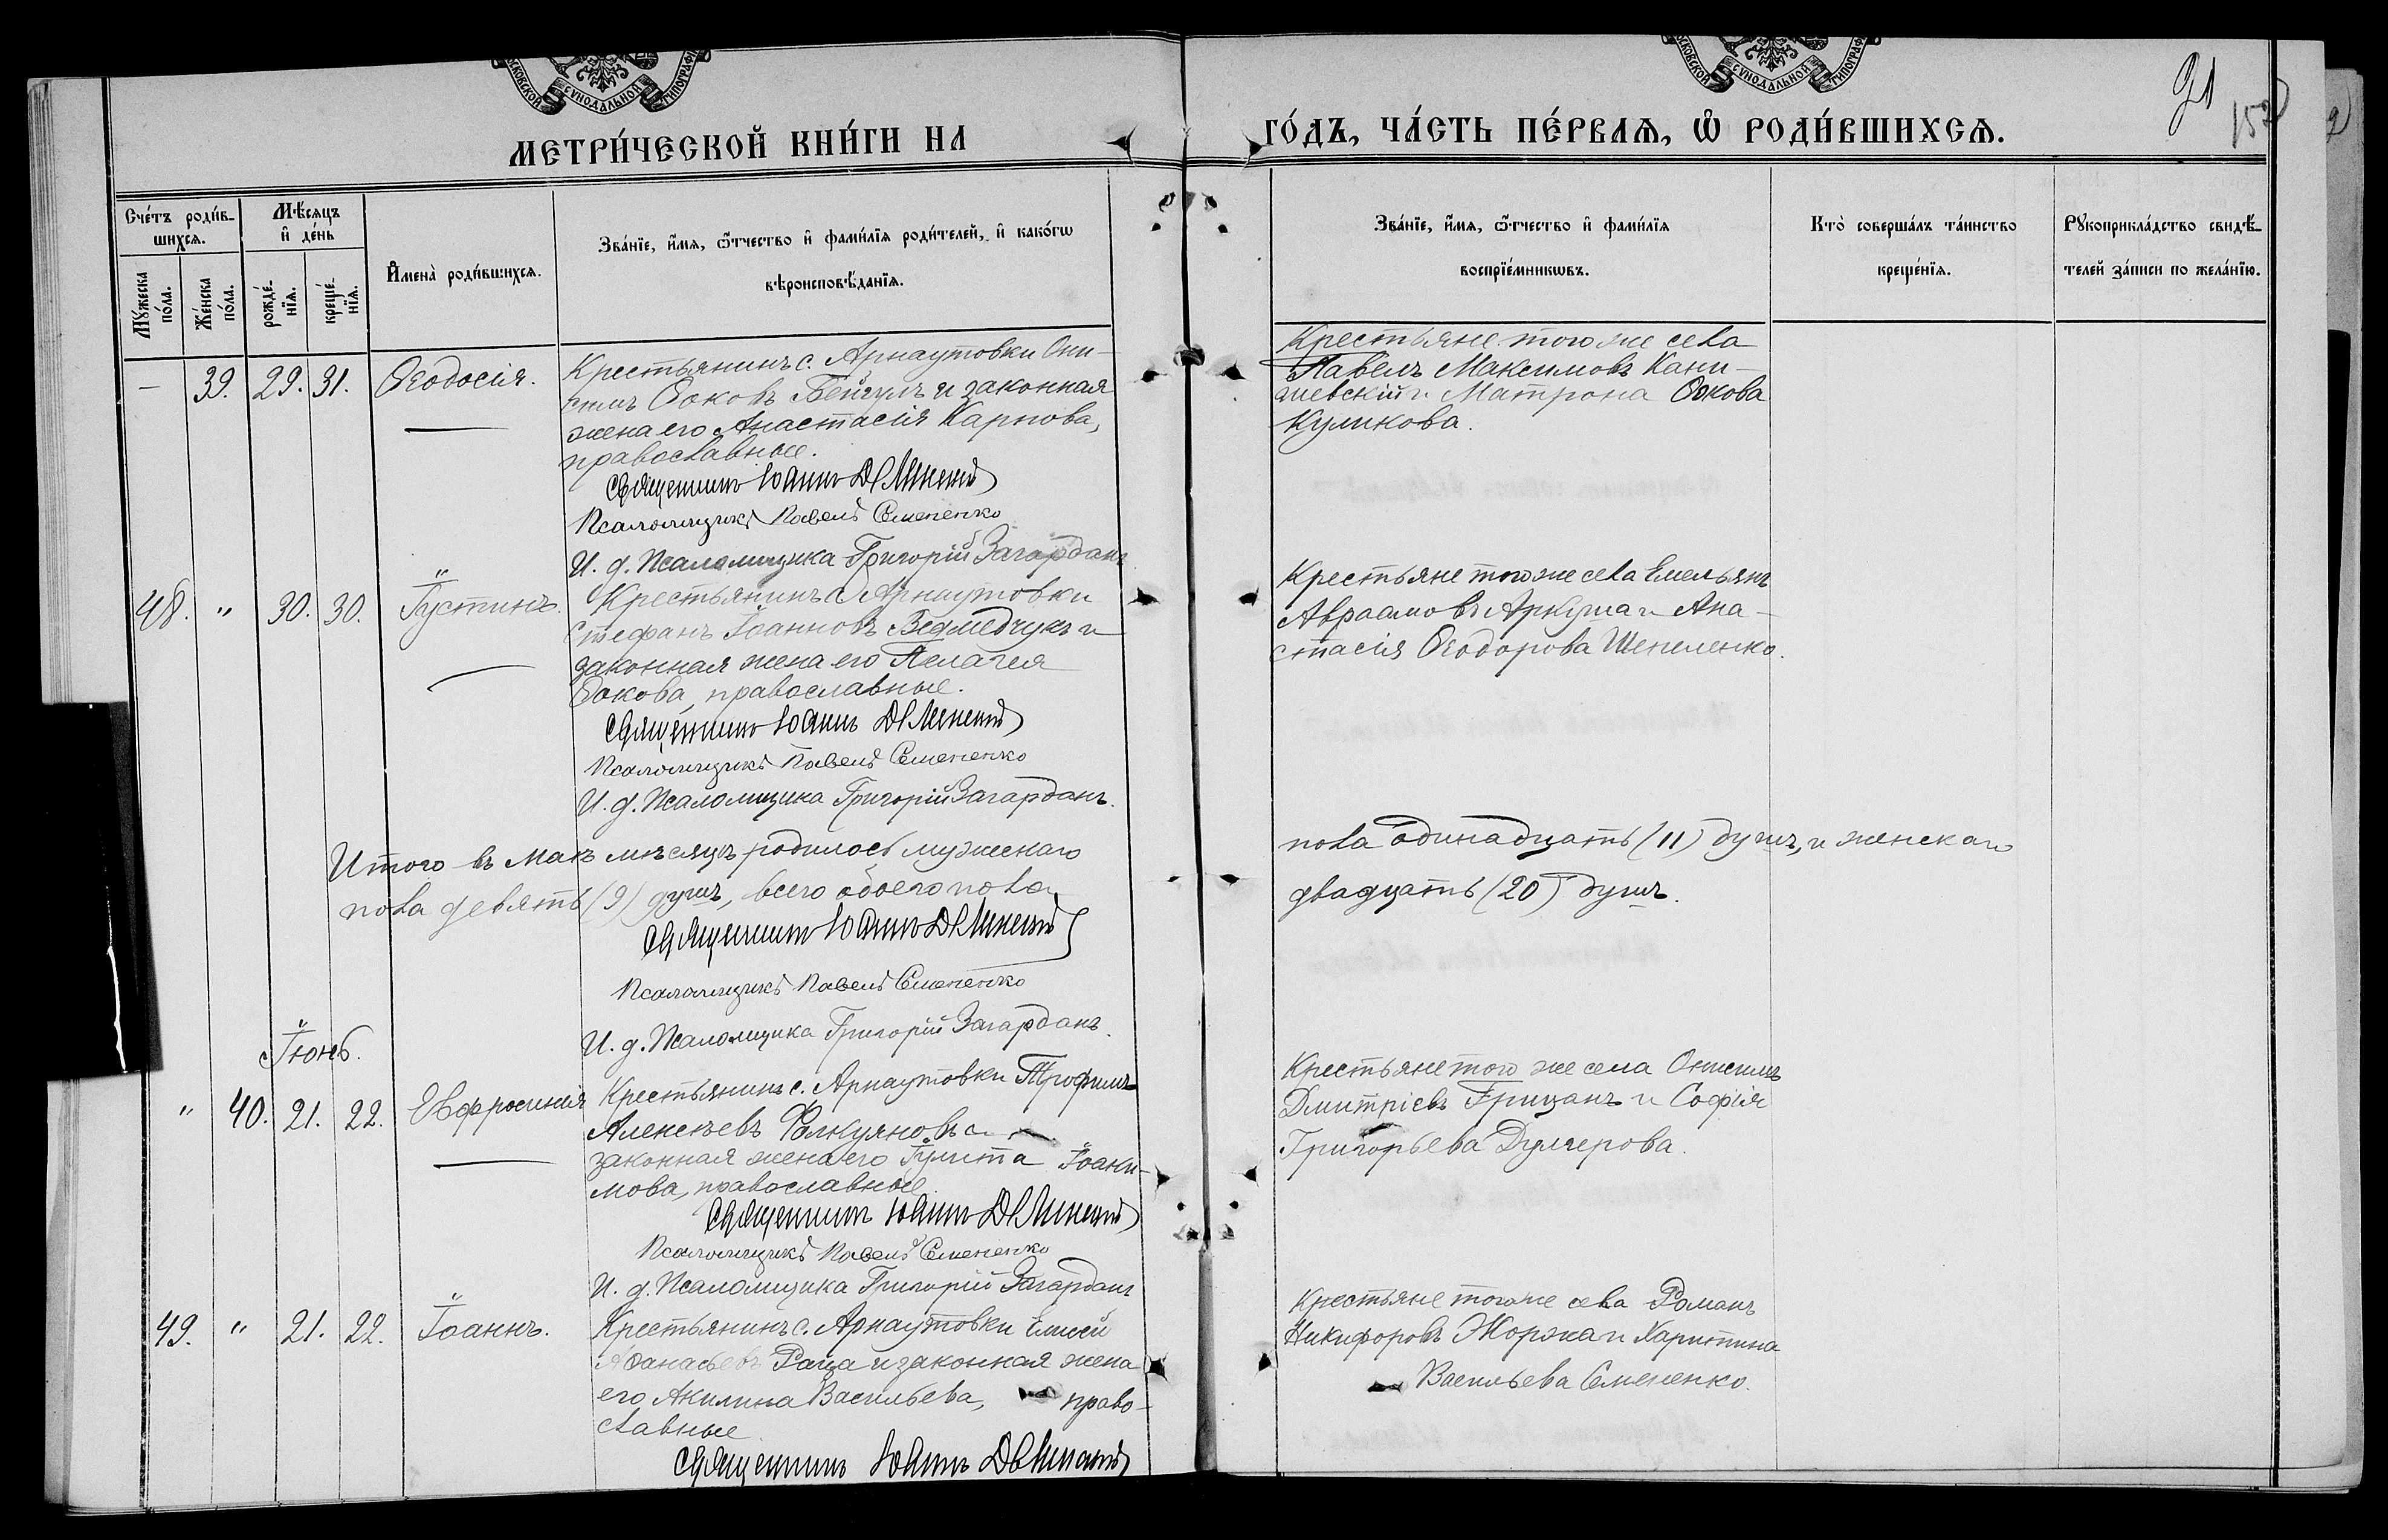 МОСКОВСКОЙ СѴНОДАЛЬНОЙ ТИПОГРАФ
МОСКОВСКОЙ СѴНОДАЛЬНОЙ ТИПОГРАФ
91
152
МЕТРИ́ЧЕСКОЙ КНИ́ГИ НА
ГО́ДЪ, ЧА́СТЬ ПЕ́РВАѦ, Ѡ РОДИ́ВШИХСѦ.
Сче́тъ роди́в-
шихсѧ.
Мꙋ́жеска по́ла.
Же́нска по́ла.
Мѣ́сѧцъ и де́нь
рожде́-нїѧ.
креще́-нїѧ.
Имена̀ роди́вшихсѧ.
Зва́нїе, и́мѧ, ѻ́тчество и фами́лїѧ роди́телей, и како́гѡ
вѣроисповѣ́данїѧ.
Зва́нїе, и́мѧ, ѻ́тчество и фами́лїѧ
воспрїе́мникѡвъ.
Кто̀ соверша́лъ та́инство
креще́нїѧ.
Рꙋкоприкла́дство свидѣ́-
телей за́писи по жела́нїю.
— 39. 29. 31. Ѳеодосія.
Крестьянинъ с. Арнаутовки Они-
симъ Ѳоковъ Бейгулъ и законная
жена его Анастасія Карпова,
православные.
Священникъ Іоаннъ
Псаломщикъ Павелъ Семененко
И. д. Псаломщика Григорій Загарданъ
Крестьяне того же села
Павелъ Максимовъ Кани-
шевскій и Матрона Ѳокова
Куликова.
48. " 30. 30. Іустинъ.
Крестьянинъ с. Арнаутовки
Стефанъ Іоанновъ Ведмедчукъ и
законная жена его Пелагея
Ѳокова, православные.
Священникъ Іоаннъ
Псаломщикъ Павелъ Семененко
И. д. Псаломщика Григорій Загарданъ.
Крестьяне того же села Емельянъ
Авраамовъ Аркуша и Ана-
стасія Ѳеодорова Шепеленко.
Итого въ Маѣ мѣсяцѣ родилось мужескаго
пола одинадцать (11) душъ, и женскаго
пола девять (9) душъ, всего обоего пола
двадцать (20) душъ.
Священникъ Іоаннъ
Псаломщикъ Павелъ Семененко
И. д. Псаломщика Григорій Загарданъ.
Іюнь.
" 40. 21. 22. Евфросинія
Крестьянинъ с. Арнаутовки Трофимъ
Алексѣевъ Фалкуяновъ и
законная жена его Іулита Іоаки-
мова, православные
Священникъ Іоаннъ
Псаломщикъ Павелъ Семененко
И. д. Псаломщика Григорій Загарданъ
Крестьяне того же села Онисимъ
Дмитріевъ Грицанъ и Софія
Григорьева Дулгерова.
49. " 21. 22. Іоаннъ.
Крестьянинъ с. Арнаутовки Елисей
Аѳанасьевъ Раца и законная жена
его Акилина Васильева, право-
славные
Священникъ Іоаннъ
Крестьяне того же села Романъ
Никифоровъ Жоржа и Харитина
Васильева Семененко.